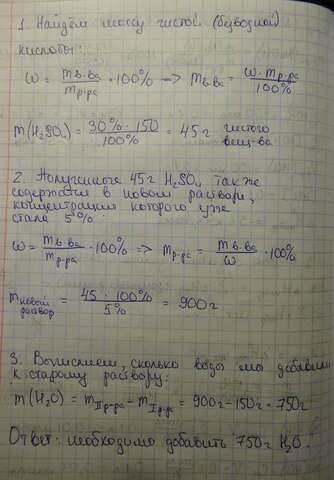 1. Найдём массу чистой (безводной)
кислоты:
ω = mв.ва / mр-ра · 100% —> mв.ва = ω · mр-ра / 100%
m(H₂SO₄) = 30% · 150 / 100% = 45 г чистого вещ-ва
2. Полученные 45 г H₂SO₄ также
содержатся в новом растворе,
концентрация которого уже
стала 5%:
ω = mв.ва / mр-ра · 100% => mр-ра = mв.ва / ω · 100%
mновый раствор = 45 · 100% / 5% = 900 г
3. Вычислим, сколько воды мы добавили
к старому раствору:
m(H₂O) = mII р-ра - mI р-ра = 900г - 150г = 750г
Ответ: необходимо добавить 750г H₂O.